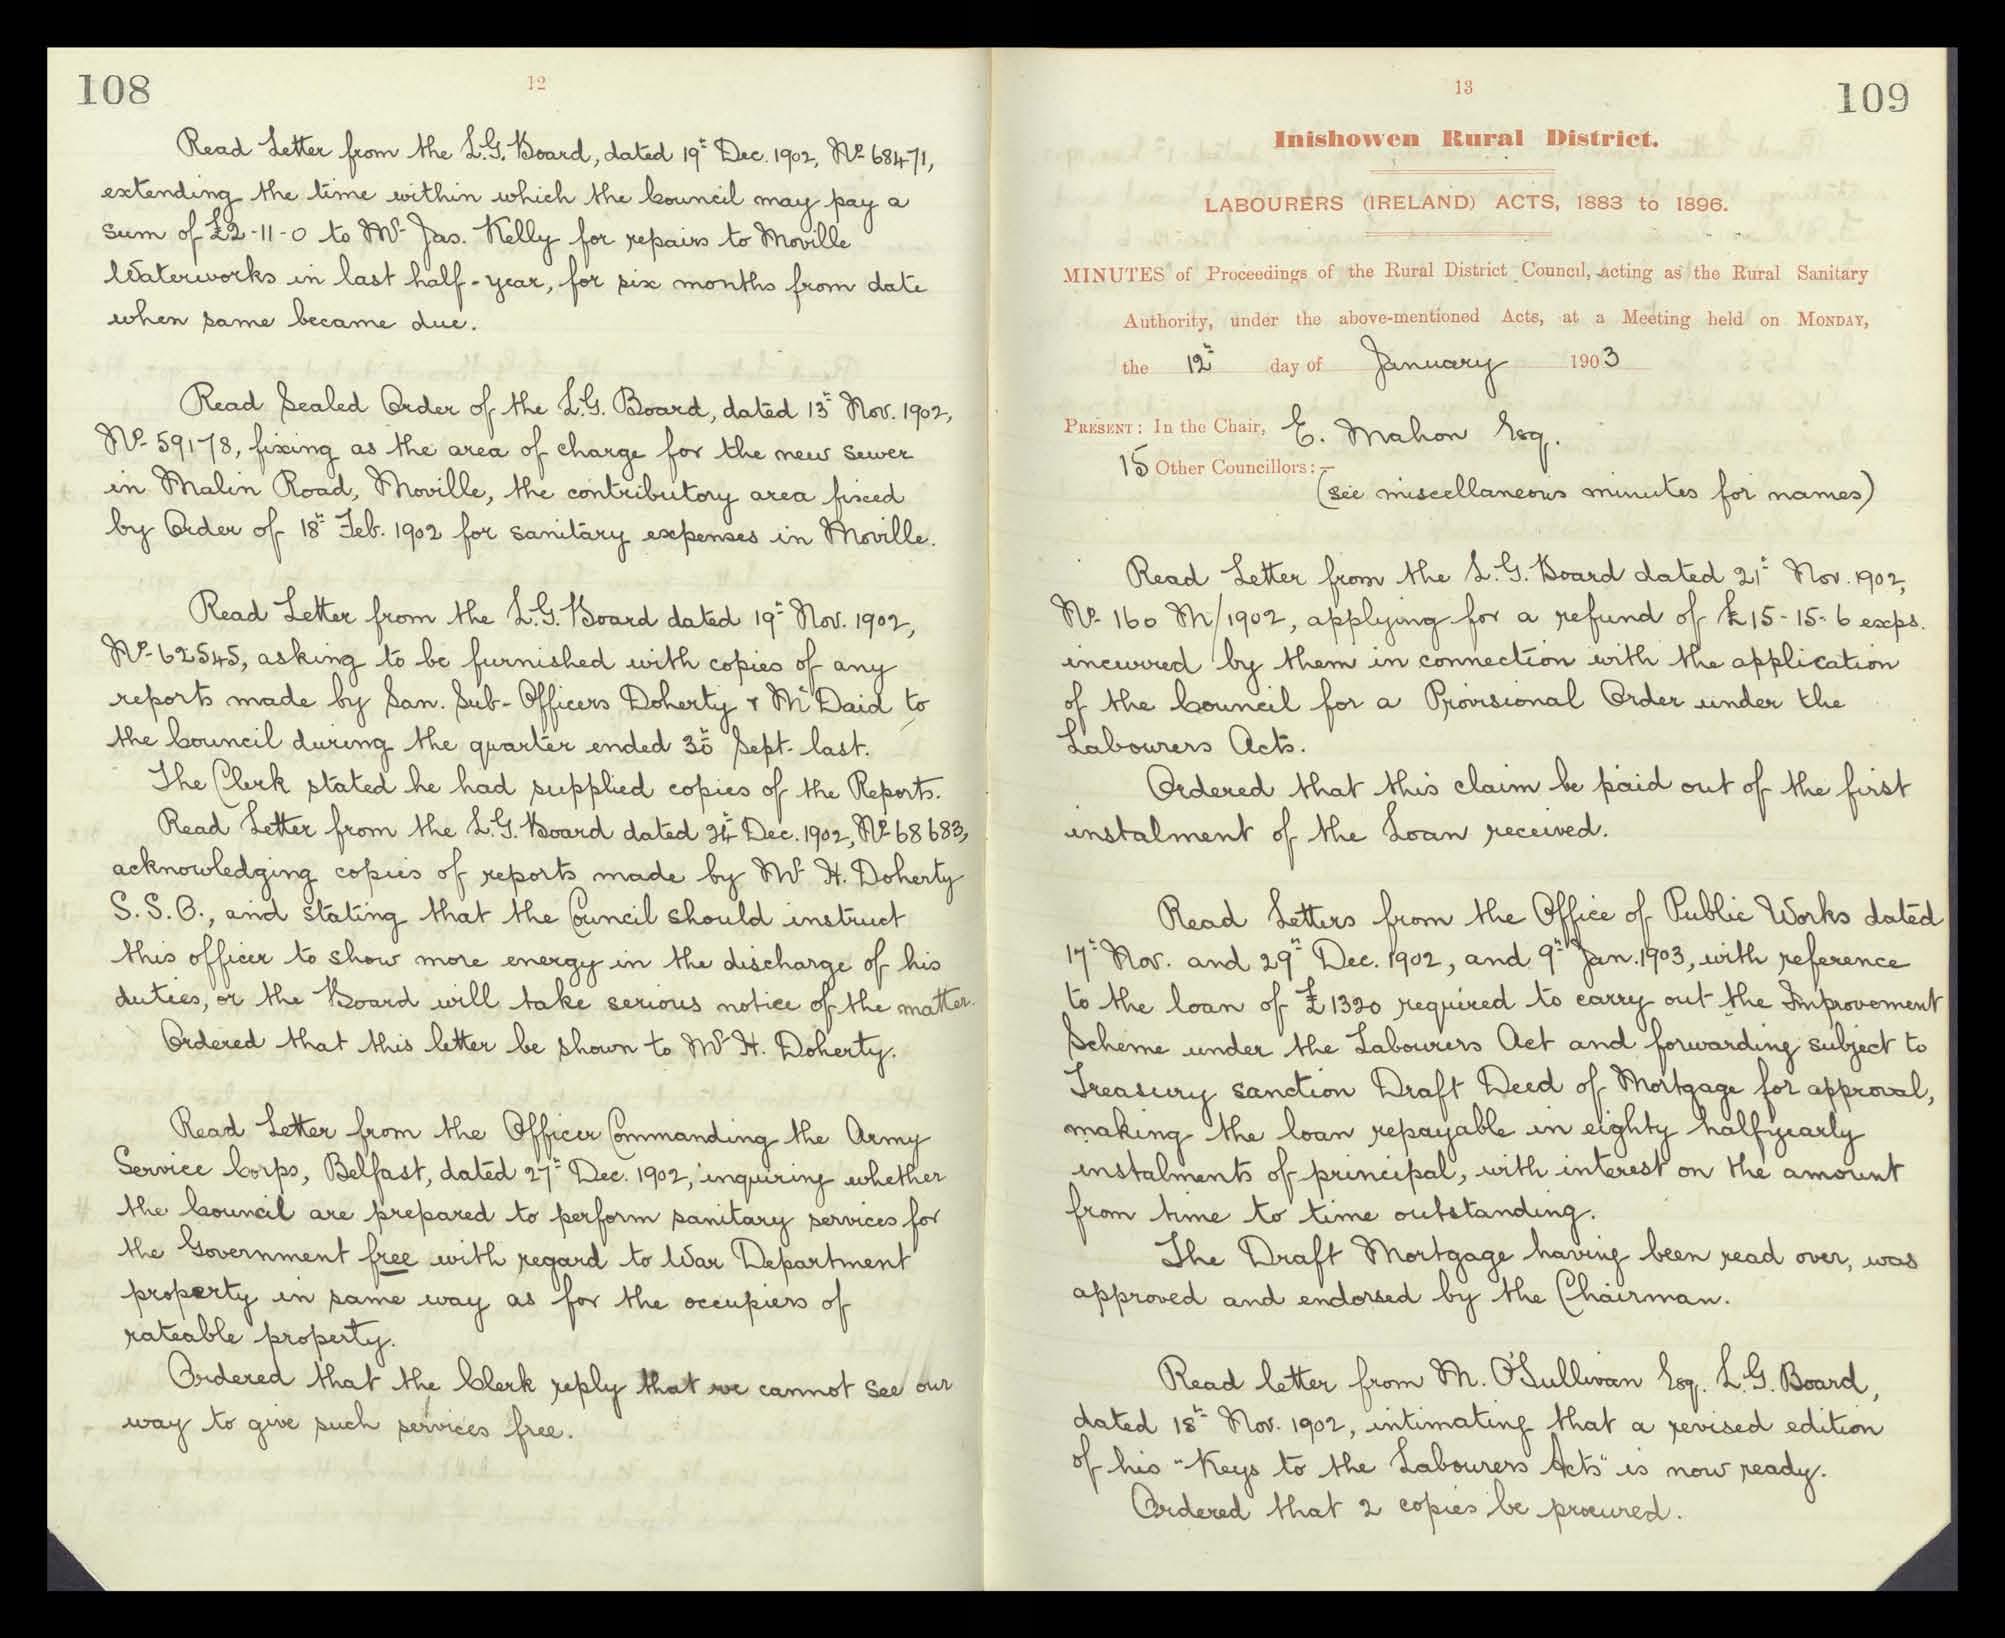 108
12
Read Letter from the L.G. Board, dated 19th Dec. 1902, No. 68471,
extending the time within which the Council may pay a
sum of £2-11-0 to Mr. Jas. Kelly for repairs to Moville
Waterworks in last half-year, for six months from date
when same became due.
Read Sealed Order of the L.G. Board, dated 13th Nov. 1902,
No. 59178, fixing as the area of charge for the new sewer
in Malin Road, Moville, the contributory area fixed
by Order of 18th Feb. 1902 for sanitary expenses in Moville.
Read Letter from the L.G. Board dated 19th Nov. 1902,
No. 62545, asking to be furnished with copies of any
reports made by San. Sub-Officers Doherty & McDaid to
the Council during the quarter ended 30th Sept. last.
The Clerk stated he had supplied copies of the Reports.
Read Letter from the L.G. Board dated 24th Dec. 1902, No. 68683,
acknowledging copies of reports made by Mr. H. Doherty
S.S.O., and stating that the Council should instruct
this officer to show more energy in the discharge of his
duties, or the Board will take serious notice of the matter.
Ordered that this letter be shown to Mr. H. Doherty.
Read Letter from the Officer Commanding the Army
Service Corps, Belfast, dated 27th Dec. 1902, inquiring whether
the Council are prepared to perform sanitary services for
the Government free with regard to War Department
property in same way as for the occupiers of
rateable property.
Ordered that the Clerk reply that we cannot see our
way to give such services free.
13
109
Inishowen Rural District.
LABOURERS (IRELAND) ACTS, 1883 to 1896.
MINUTES of Proceedings of the Rural District Council, acting as the Rural Sanitary
Authority, under the above-mentioned Acts, at a Meeting held on MONDAY,
the 12th day of January 1903
PRESENT: In the Chair, E. Mahon Esq.
15 Other Councillors:—
(see miscellaneous minutes for names)
Read Letter from the L.G. Board dated 21st Nov. 1902,
No. 160 M/1902, applying for a refund of £15-15-6 exps.
incurred by them in connection with the application
of the Council for a Provisional Order under the
Labourers Acts.
Ordered that this claim be paid out of the first
instalment of the Loan received.
Read Letters from the Office of Public Works dated
17th Nov. and 29th Dec. 1902, and 9th Jan. 1903, with reference
to the loan of £1320 required to carry out the Improvement
Scheme under the Labourers Act and forwarding subject to
Treasury sanction Draft Deed of Mortgage for approval,
making the loan repayable in eighty halfyearly
instalments of principal, with interest on the amount
from time to time outstanding.
The Draft Mortgage having been read over, was
approved and endorsed by the Chairman.
Read letter from M. O'Sullivan Esq. L.G. Board,
dated 18th Nov. 1902, intimating that a revised edition
of his "Keys to the Labourers Acts" is now ready.
Ordered that 2 copies be procured.